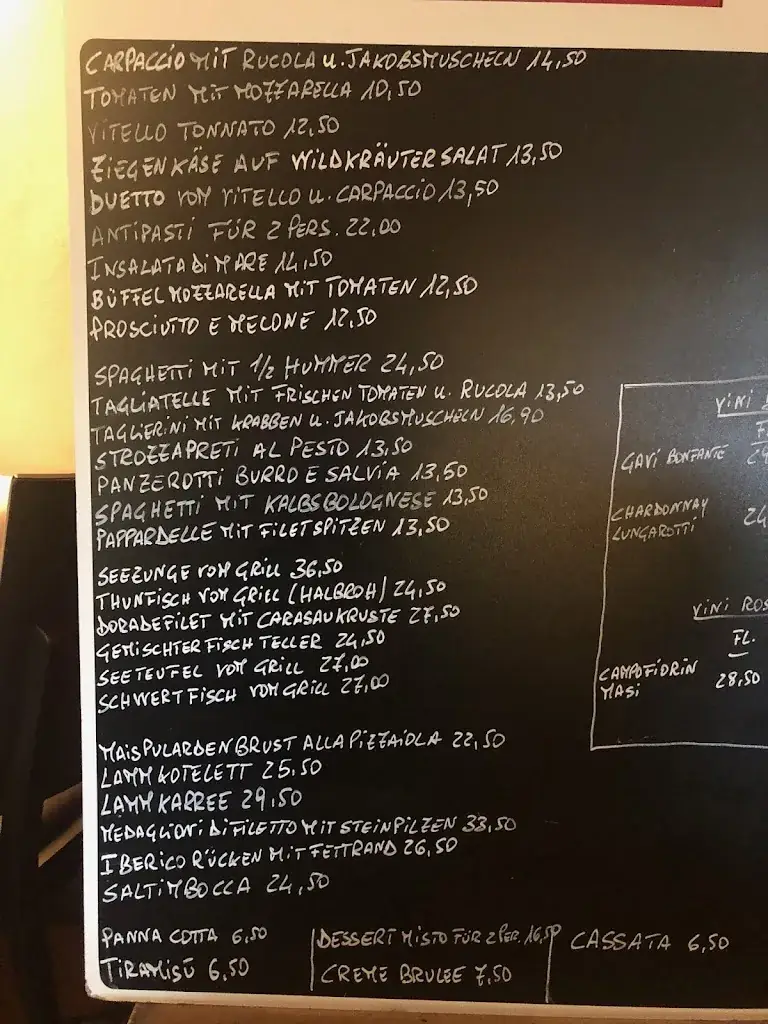 CARPACCIO MIT RUCOLA U. JAKOBSMUSCHELN 14,50
TOMATEN MIT MOZZARELLA 10,50
VITELLO TONNATO 12,50
ZIEGENKÄSE AUF WILDKRÄUTERSALAT 13,50
DUETTO VOM VITELLO U. CARPACCIO 13,50
ANTIPASTI FÜR 2 PERS. 22,00
INSALATA DI MARE 14,50
BÜFFELMOZZARELLA MIT TOMATEN 12,50
PROSCIUTTO E MELONE 12,50
SPAGHETTI MIT 1/2 HUMMER 24,50
TAGLIATELLE MIT FRISCHEN TOMATEN U. RUCOLA 13,50
TAGLIERINI MIT KRABBEN U. JAKOBSMUSCHELN 16,90
STROZZAPRETI AL PESTO 13,50
PANZEROTTI BURRO E SALVIA 13,50
SPAGHETTI MIT KALBSBOLOGNESE 13,50
PAPPARDELLE MIT FILETSPITZEN 13,50
SEEZUNGE VOM GRILL 36,50
THUNFISCH VOM GRILL (HALBROH) 24,50
DORADEFILET MIT CARASAUKRUSTE 27,50
GEMISCHTER FISCH TELLER 24,50
SEETEUFEL VOM GRILL 27,00
SCHWERTFISCH VOM GRILL 27,00
MAISPULARDENBRUST ALLA PIZZAIOLA 22,50
LAMMKOTELETT 25,50
LAMMKARREE 29,50
MEDAGLIONI DI FILETTO MIT STEINPILZEN 33,50
IBERICO RÜCKEN MIT FETTRAND 26,50
SALTIMBOCCA 24,50
PANNA COTTA 6,50
TIRAMISÙ 6,50
DESSERT MISTO FÜR 2 PER. 16,50
CREME BRULEE 7,50
CASSATA 6,50
VINI
GAVI BONFANTE
CHARDONNAY 24
LUNGAROTTI
VINI ROS
FL.
CAMPOFIORIN 28,50
MASI